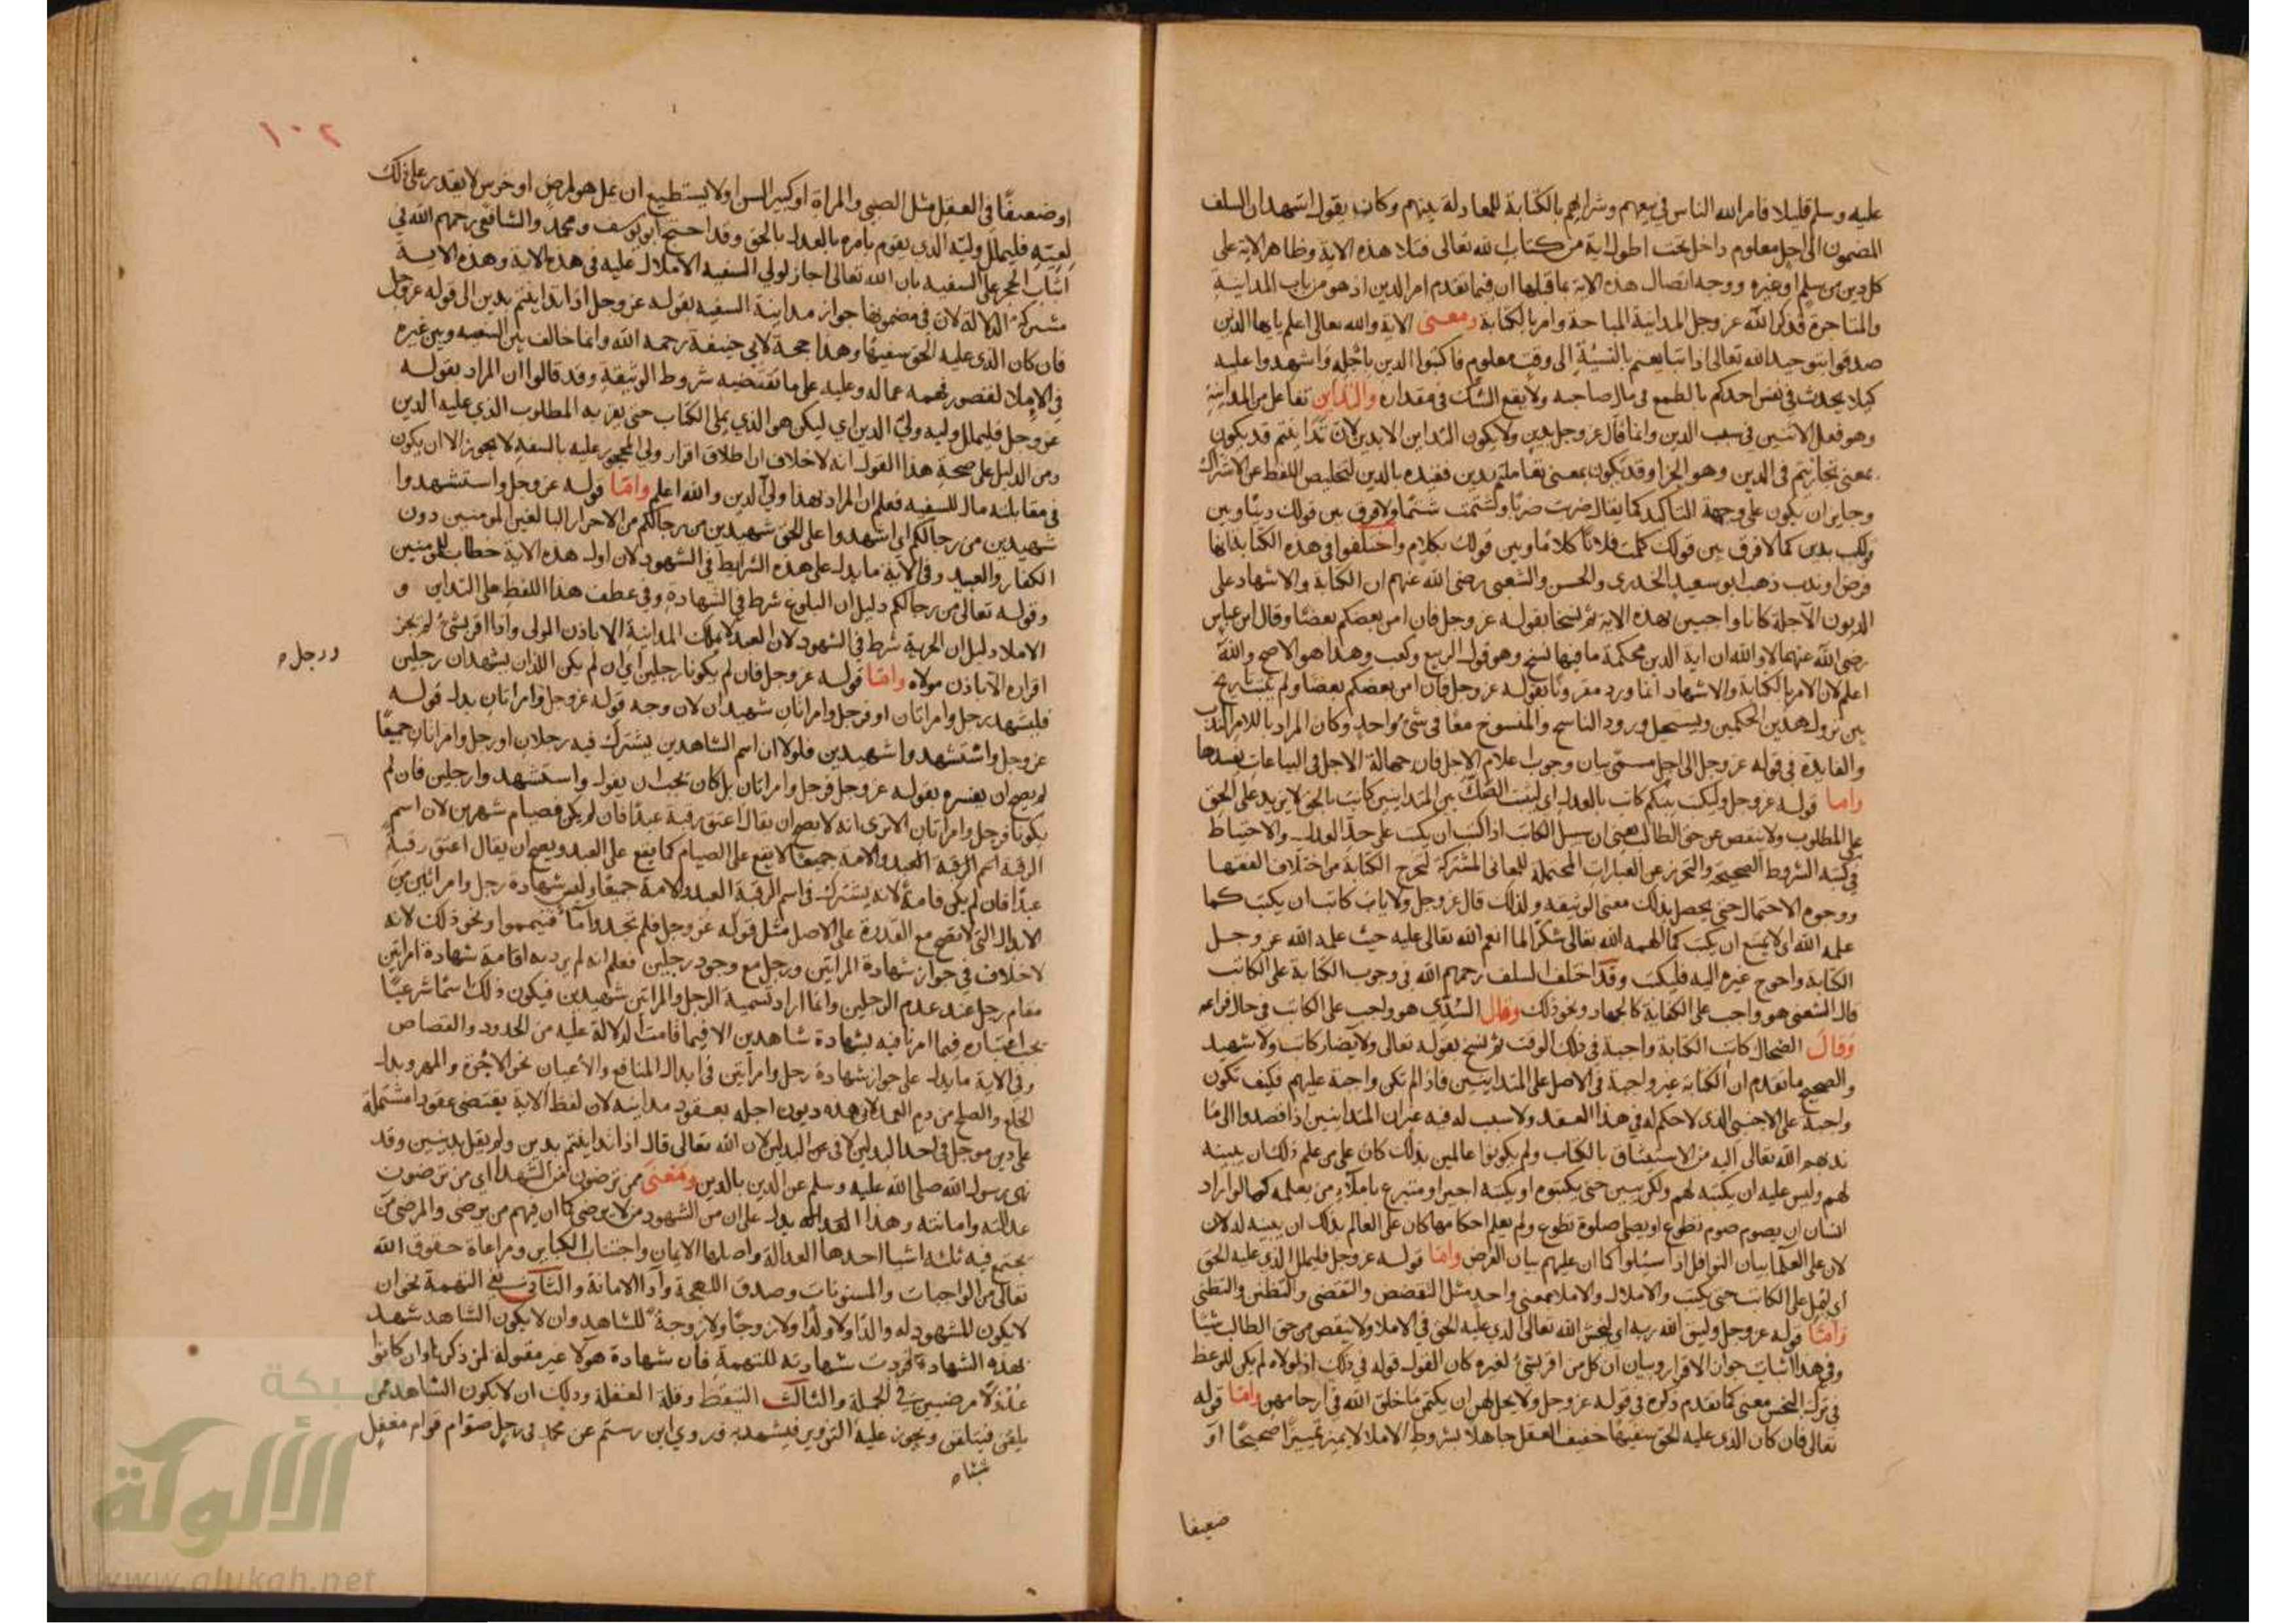 عليه وسلم قليلا فامر الله الناس في بيعهم وشرائهم بالكتابة للمعادلة بينهم وكان يقول اشهد ان السلف
المضمون الى اجل معلوم داخل تحت اطول اية من كتاب الله تعالى فتلا هذه الاية وظاهر الاية على
كل دين من سلم او غيره ووجه اتصال هذه الاية بما قبلها ان فيما تقدم امر الدين اذ هو من باب المداينة
والمتاجرة فذكر الله عز وجل المداينة المباحة وامر بالكتابة ومعنى الاية والله تعالى اعلم يا ايها الذين
صدقوا بتوحيد الله تعالى اذا تبايعتم بالنسيئة الى وقت معلوم فاكتبوا الدين باجله واشهدوا عليه
كيلا يحدث في نفس احدكم بالطمع في مال صاحبه ولا يقع الشك في مقداره والتداين تفاعل من المداينة
وهو فعل الاثنين في سبب الدين وانما قال عز وجل بدين ولا يكون التداين الا بدين لان تداينتم قد يكون
بمعنى تجازيتم في الدين وهو الجزا وقد يكون بمعنى تعاملتم بدين فقيده بالدين لتخليص اللفظ عن الاشتراك
وجايز ان يكون على وجهة التاكيد كما يقال ضربت ضربا وشتمت شتما ولا فرق بين قولك دينا وبين
قولك بدين كما لا فرق بين قولك كلمت فلانا كلاما وبين قولك بكلام واختلفوا في هذه الكتابة انها
فرض او ندب ذهب ابو سعيد الخدري والحسن والشعبي رضي الله عنهم ان الكتابة والاشهاد على
الديون الآجلة كانا واجبين بهذه الاية ثم نسخا بقوله عز وجل فان امن بعضكم بعضا وقال ابن عباس
رضي الله عنهما لا والله ان اية الدين محكمة ما فيها نسخ وهو قول الربيع وكعب وهذا هو الاصح والله
اعلم لان الامر بالكتابة والاشهاد انما ورد مقرونا بقوله عز وجل فان امن بعضكم بعضا ولم يثبت تاريخ
بين نزول هذين الحكمين ويستحيل ورود الناسخ والمنسوخ معا في شيء واحد وكان المراد بالامر الندب
والفايدة في قوله عز وجل الى اجل مسمى بيان وجوب اعلام الاجل فان جهالة الاجل في البياعات يفسدها
واما قوله عز وجل وليكتب بينكم كاتب بالعدل اي ليثبت الصك بين المتداينين كاتب بالحق لا يزيد على الحق
على المطلوب ولا ينقص عن حق الطالب يعني ان سبيل الكاتب اذا كتب ان يكتب على حد العدل والاحتياط
في كتبه الشروط الصحيحة والتحرز عن العبارات المحتملة للمعاني المشتركة لتخرج الكتابة من اختلاف الفقها
ووجوه الاحتمال حتى يحصل بذلك معنى الوثيقة ولذلك قال عز وجل ولا ياب كاتب ان يكتب كما
علمه الله اي لا يمتنع ان يكتب كما الهمه الله تعالى شكرا لما انعم الله تعالى عليه حيث علمه الله عز وجل
الكتابة واحوج غيره اليه فليكتب وقد اختلف السلف رحمهم الله في وجوب الكتابة على الكاتب
قال الشعبي هو واجب على الكفاية كالجهاد ونحو ذلك وقال السدي هو واجب على الكاتب في حال فراغه
وقال الضحاك كانت الكتابة واجبة في ذلك الوقت ثم نسخ بقوله تعالى ولا يضار كاتب ولا شهيد
والصحيح ما تقدم ان الكتابة غير واجبة في الاصل على المتداينين فاذا لم تكن واجبة عليهم فكيف تكون
واجبة على الاجنبي الذي لا حكم له في هذا العقد ولا سبب له فيه غير ان المتداينين اذا قصدوا الى ما
ندبهم الله تعالى اليه من الاستيثاق بالكتاب ولم يكونوا عالمين بذلك كان على من علم ذلك ان يبينه
لهم وليس عليه ان يكتبه لهم ولكن يبين حتى يكتبوه او يكتبه اجير او متبرع باملاء من يعلمه كما لو اراد
انسان ان يصوم صوم تطوع او يصلي صلوة تطوع ولم يعلم احكامها كان على العالم بذلك ان يبينه له لان
لان على العلما بيان النوافل اذا سيئلوا كما ان عليهم بيان الفرض واما قوله عز وجل فليملل الذي عليه الحق
اي ليمل على الكاتب حتى يكتب والاملال والاملا بمعنى واحد مثل التقضض والتقضي والتظنن والتظني
واما قوله عز وجل وليتق الله ربه اي ليخش الله تعالى الذي عليه الحق في الاملا ولا ينقص من حق الطالب شيئا
وفي هذا اثبات جواز الاقرار وبيان ان كل من اقر بشيء لغيره كان القول قوله في ذلك اذ لولاه لم يكن للوعظ
في ترك البخس معنى كما تقدم ذكره في قوله عز وجل ولا يحل لهن ان يكتمن ما خلق الله في ارحامهن واما قوله
تعالى فان كان الذي عليه الحق سفيها خفيف العقل جاهلا بشروط الاملا لا يميز تمييزا صحيحا او
ضعيفا
١٠٢
او ضعيفا في العقل مثل الصبي والمراة او كبير السن او لا يستطيع ان يمل هو لمرض او خرس لا يقدر على ذلك
لعيته فليملل وليه الذي يقوم بامره بالعدل بالحق وقد احتج ابو يوسف ومحمد والشافعي رحمهم الله في
اثبات الحجر على السفيه بان الله تعالى اجاز لولي السفيه الاملال عليه في هذه الاية وهذه الاية
مشتركة الدلالة لان في مضمونها جواز مداينة السفيه بقوله عز وجل اذا تداينتم بدين الى قوله عز وجل
فان كان الذي عليه الحق سفيها وهذا حجة لابي حنيفة رحمه الله وانما خالف بين السفيه وبين غيره
في الاملا لقصور فهمه عما له وعليه على ما تقتضيه شروط الوثيقة وقد قالوا ان المراد بقوله
عز وجل فليملل وليه ولي الدين اي ليكن هو الذي يملي الكتاب حتى يقر به المطلوب الذي عليه الدين
ومن الدليل على صحة هذا القول انه لا خلاف ان اطلاق اقرار ولي المحجور عليه بالسفه لا يجوز الا ان يكون
في مقابلته مال للسفيه فعلم ان المراد بهذا ولي الدين والله اعلم واما قوله عز وجل واستشهدوا
شهيدين من رجالكم اي اشهدوا على الحق شهيدين من رجالكم من الاحرار البالغين المومنين دون
الكفار والعبيد وفي الاية ما يدل على هذه الشرايط في الشهود لان اول هذه الاية خطاب للمومنين
وقوله تعالى من رجالكم دليل ان البلوغ شرط في الشهادة وفي عطف هذا اللفظ على التداين و
الاملا دليل ان الحرية شرط في الشهود لان العبد لا يملك المداينة الا باذن المولى واذا اقر بشيء لم يجز
اقراره الا باذن مولاه واما قوله عز وجل فان لم يكونا رجلين اي ان لم يكن اللذان يشهدان رجلين
فليشهد رجل وامراتان او فرجل وامراتان شهيدان لان وجه قوله عز وجل وامراتان يدل قوله
ورجل
عز وجل واستشهدوا شهيدين فلولا ان اسم الشاهدين يشترك فيه رجلان او رجل وامراتان جميعا
لم يصح ان يفسره بقوله عز وجل فرجل وامراتان بل كان يجب ان يقول واستشهدوا رجلين فان لم
يكونا فرجل وامراتان الا ترى انه لا يصح ان يقال اعتق رقبة عبدا فان لم يكن فصيام شهرين لان اسم
الرقبة اسم الرقبة العبد والامة جميعا لا يقع على الصيام كما يقع على العبد ويصح ان يقال اعتق رقبة
عبدا فان لم يكن فامة لانه يشترك في اسم الرقبة العبد والامة جميعا وليس شهادة رجل وامراتين من
الابدال التي لا تصح مع القدرة على الاصل مثل قوله عز وجل فلم تجدوا ماء فتيمموا ونحو ذلك لانه
لا خلاف في جواز شهادة المراتين ورجل مع وجود رجلين فعلم انه لم يرد به اقامة شهادة امراتين
مقام رجل عند عدم الرجلين وانما اراد تسمية الرجل والمراتين شهيدين فيكون ذلك اسما شرعيا
يجب اعتباره فيما امرنا فيه بشهادة شاهدين الا فيما قامت الدلالة عليه من الحدود والقصاص
وفي الاية ما يدل على جواز شهادة رجل وامراتين في ابدال المنافع والأعيان نحو الاجرة والمهر وبدل
الخلع والصلح من دم العمد لان هذه ديون اجله بعقود مداينة لان لفظ الاية يقتضي عقودا مشتملة
على دين موجل في احد البدلين لا في البدلين لان الله تعالى قال اذا تداينتم بدين ولم يقل بدينين وقد
نهى رسول الله صلى الله عليه وسلم عن الدين بالدين ومعنى ممن ترضون من الشهدا اي من ترضون
عدالته وامانته وهذا يدل على ان من الشهود من لا يرضى كما ان فيهم من يرضى والمرضي من
تجتمع فيه ثلثه اشيا احدها العدالة واصلها الايمان واجتناب الكباير ومراعاة حقوق الله
تعالى من الواجبات والمسنونات وصدق اللهجة وآدا الامانة والثاني نفي التهمة نحو ان
لا يكون المشهود له والدا ولا ولدا ولا زوجا ولا زوجة للشاهد وان لا يكون الشاهد شهد
بهذه الشهادة فردت شهادته للتهمة فان شهادة هولا غير مقبولة لمن ذكرنا وان كانوا
عدولا مرضيين في الجملة والثالث التيقظ وقلة الغفلة وذلك ان لا يكون الشاهد ممن
يلقن فيتلقن ويجوز عليه التزوير فيشهد به فروي ابن رستم عن محمد في رجل صوام قوام مغفل
شبكة
الألوكة
www.alukah.net